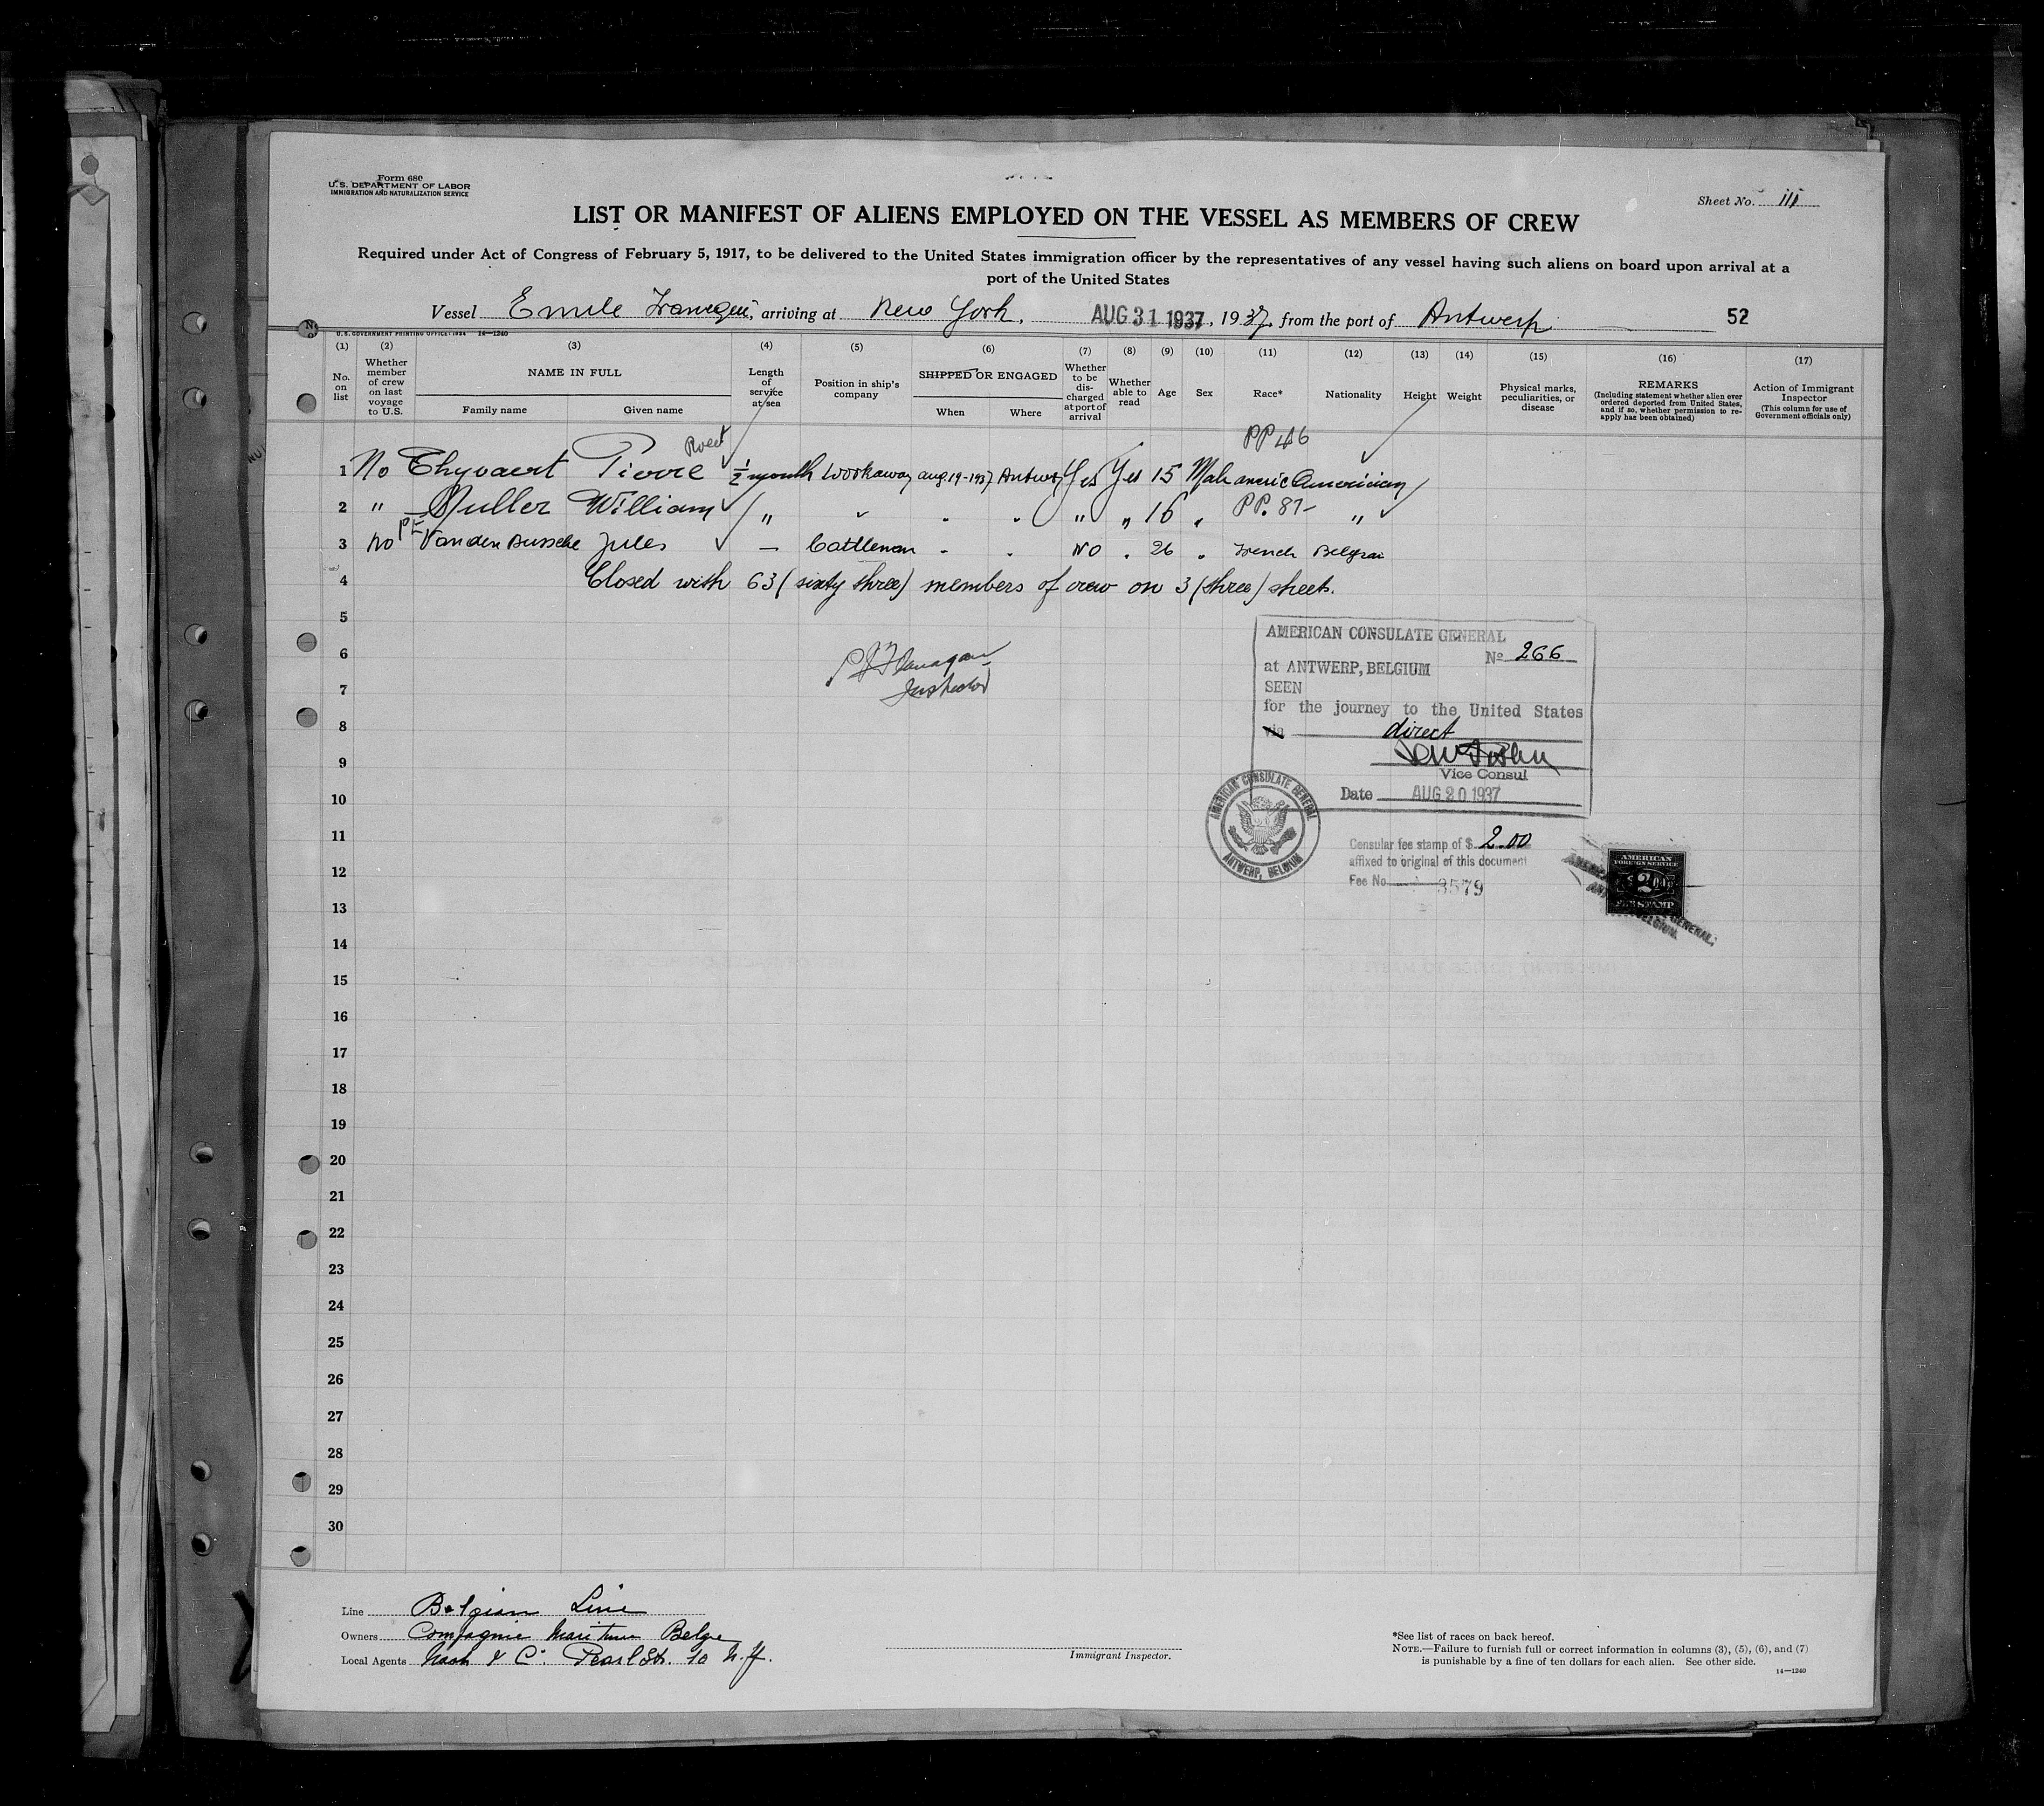 Form 680
U.S. DEPARTMENT OF LABOR
IMMIGRATION AND NATURALIZATION SERVICE
Sheet No. III
LIST OR MANIFEST OF ALIENS EMPLOYED ON THE VESSEL AS MEMBERS OF CREW
Required under Act of Congress of February 5, 1917, to be delivered to the United States immigration officer by the representatives of any vessel having such aliens on board upon arrival at a
port of the United States
Vessel Emile Francqui, arriving at New York, AUG 31 1937, 1937, from the port of Antwerp 52
U.S. GOVERNMENT PRINTING OFFICE: 1934 14—1240
(1) (2) (3) (4) (5) (6) (7) (8) (9) (10) (11) (12) (13) (14) (15) (16) (17)
No. on list
Whether member of crew on last voyage to U.S.
NAME IN FULL
Family name
Given name
Length of service at sea
Position in ship's company
SHIPPED OR ENGAGED
When
Where
Whether to be discharged at port of arrival
Whether able to read
Age
Sex
Race*
Nationality
Height
Weight
Physical marks, peculiarities, or disease
REMARKS
(Including statement whether alien ever ordered deported from United States, and if so, whether permission to reapply has been obtained)
Action of Immigrant Inspector
(This column for use of Government officials only)
PP 46
1 No Thyvaert Pierre ½ month Workaway aug. 19-1937 Antwerp Yes Yes 15 Male americ American
2 " Muller William " " " 16 PP. 87- "
3 No Vanden Bussche Jules — Cattleman No 26 French Belgian
4 Closed with 63 (sixty three) members of crew on 3 (three) sheets.
5
6
7
8
9
10
11
12
13
14
15
16
17
18
19
20
21
22
23
24
25
26
27
28
29
30
P J Flanagan
Inspector
AMERICAN CONSULATE GENERAL
No 266
at ANTWERP, BELGIUM
SEEN
for the journey to the United States
via direct
Vice Consul
Date AUG 20 1937
AMERICAN CONSULATE GENERAL
ANTWERP, BELGIUM
Consular fee stamp of $ 2.00
affixed to original of this document
Fee No. 3579
AMERICAN
FOREIGN SERVICE
$2.00
FEE STAMP
Line Belgian Line
Owners Compagnie Maritime Belge
Local Agents Nash & Co. Pearl Str. 10 N.Y.
Immigrant Inspector.
*See list of races on back hereof.
NOTE.—Failure to furnish full or correct information in columns (3), (5), (6), and (7)
is punishable by a fine of ten dollars for each alien. See other side.
14—1240